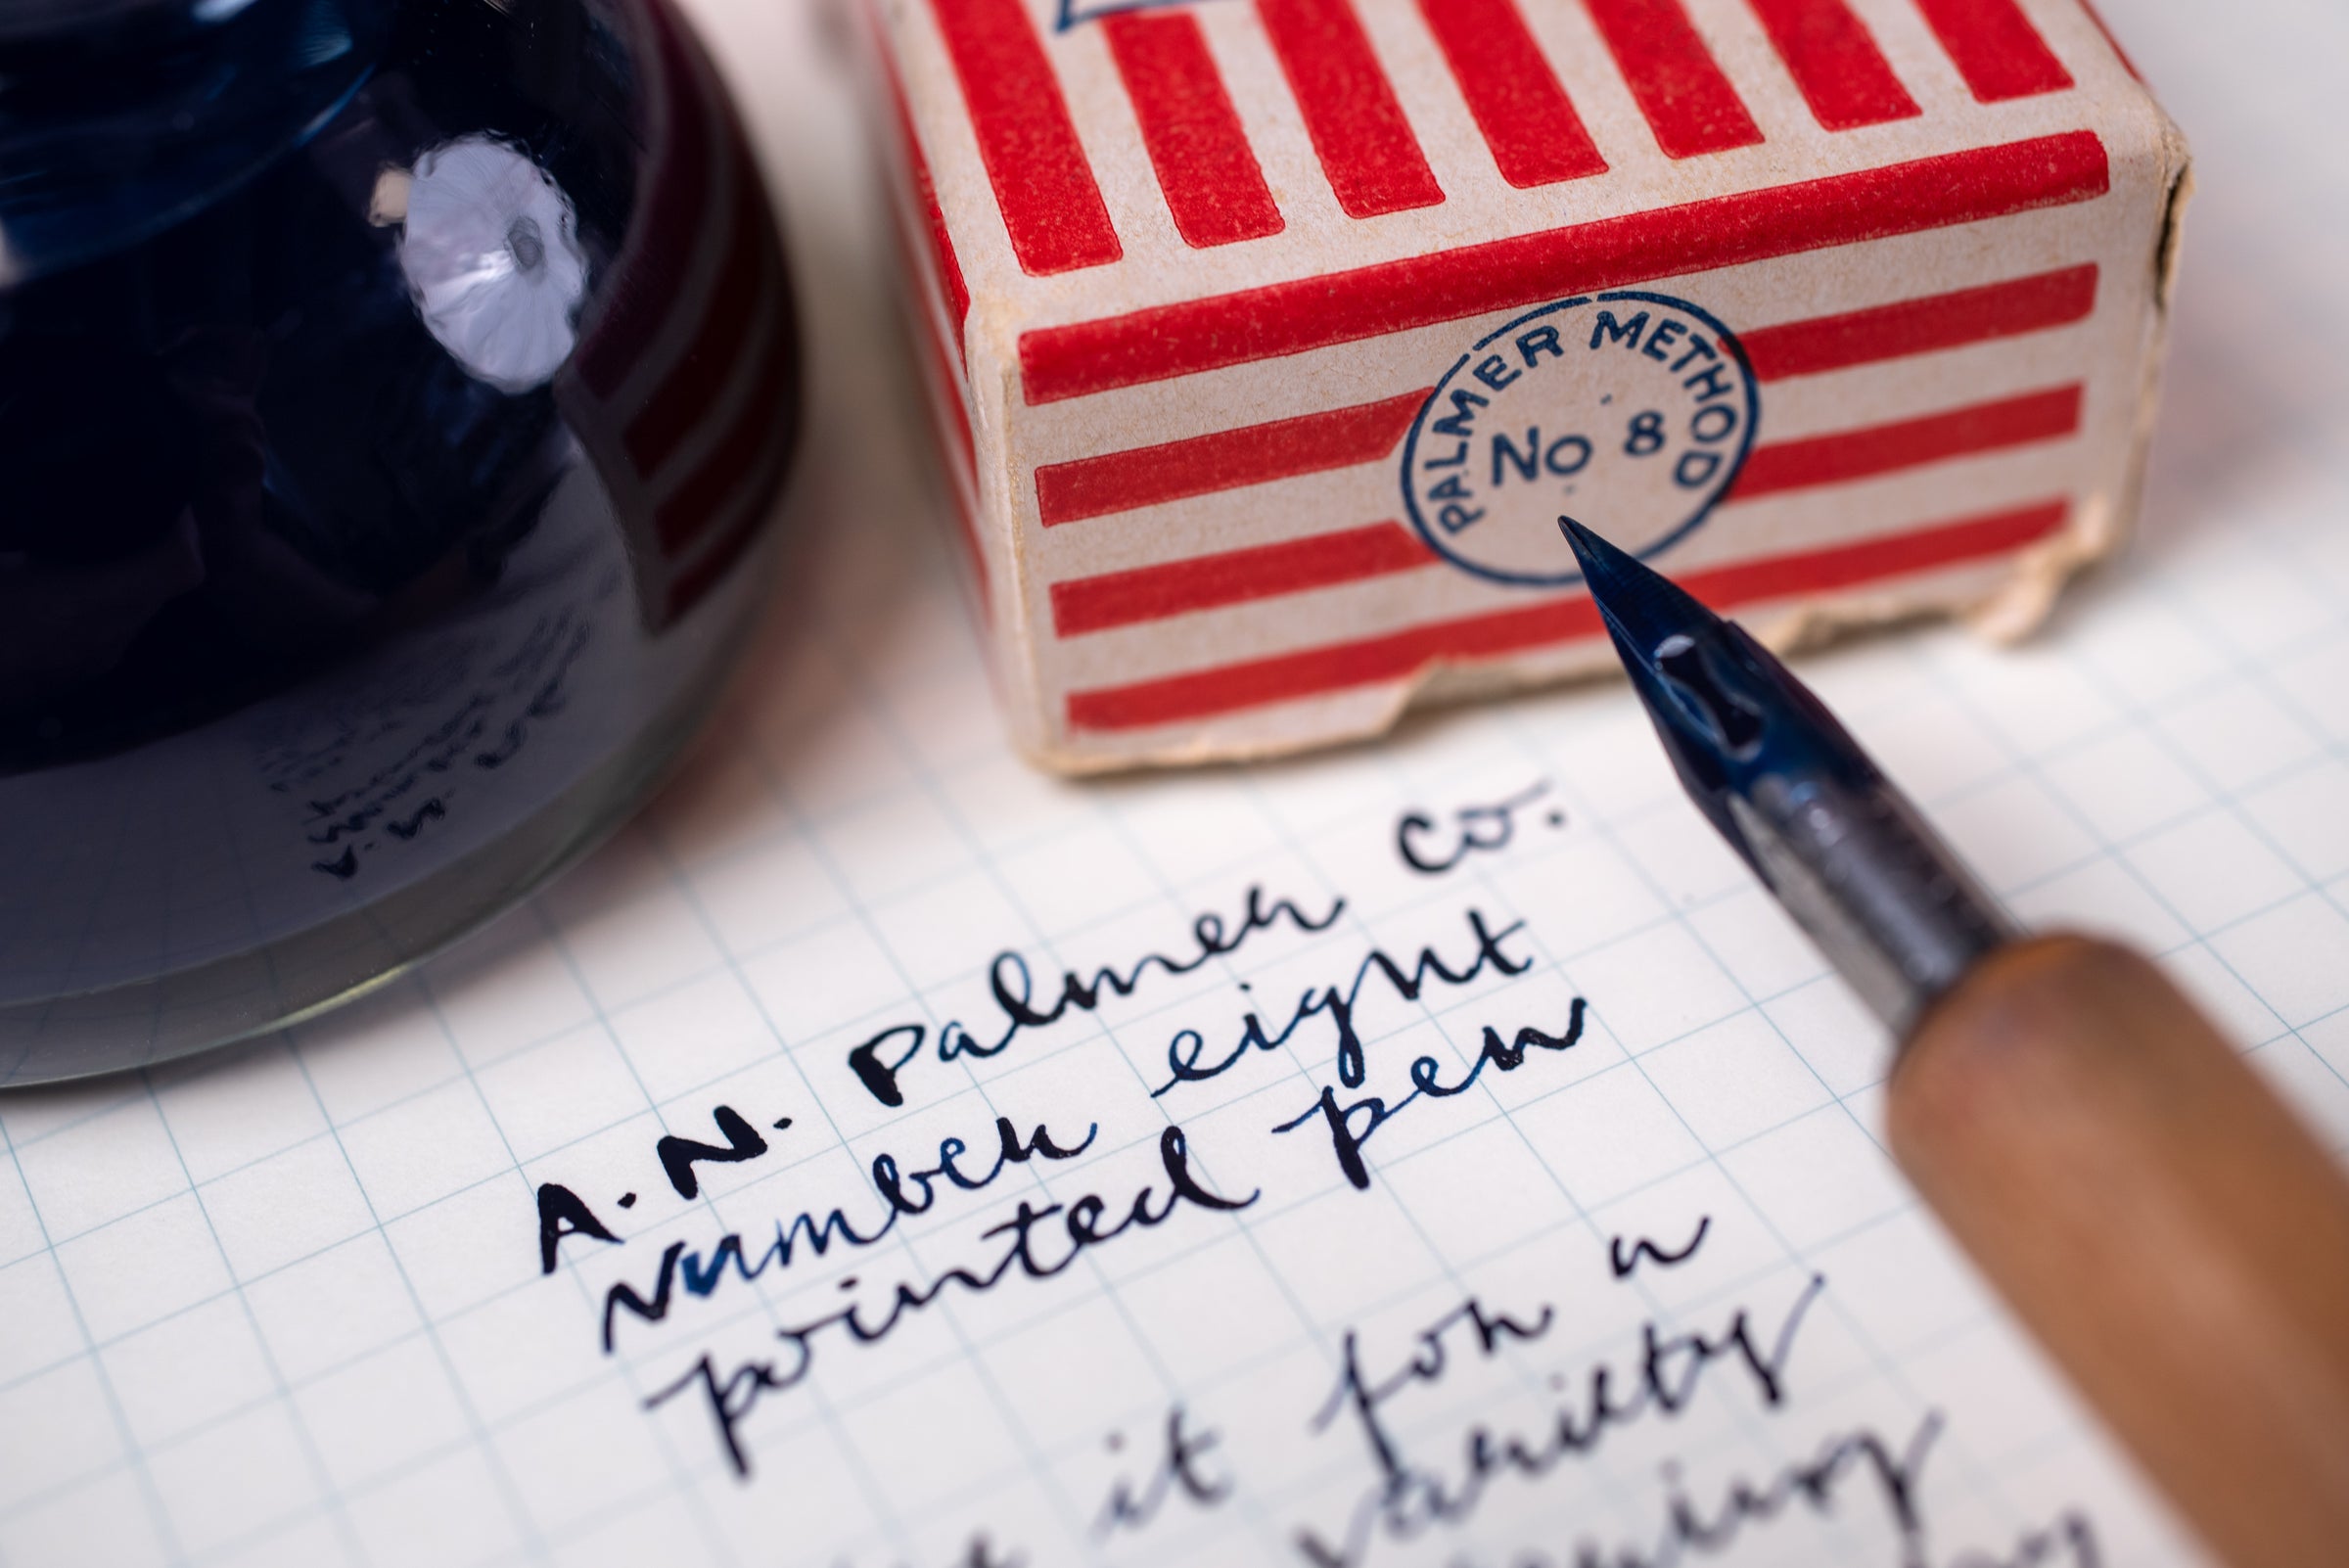 PALMER METHOD
No 8
A. N. Palmer Co.
Number eight
pointed pen
it for a
variety